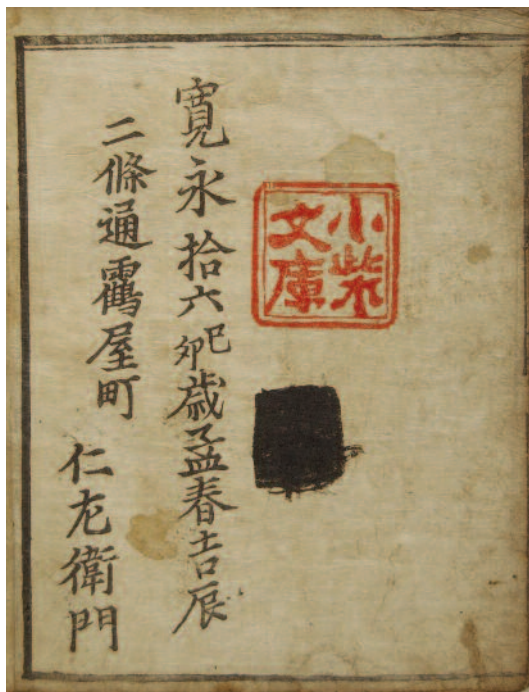 小柴
文庫
寛永拾六巳夘歳孟春吉辰
二條通靏屋町
仁左衛門